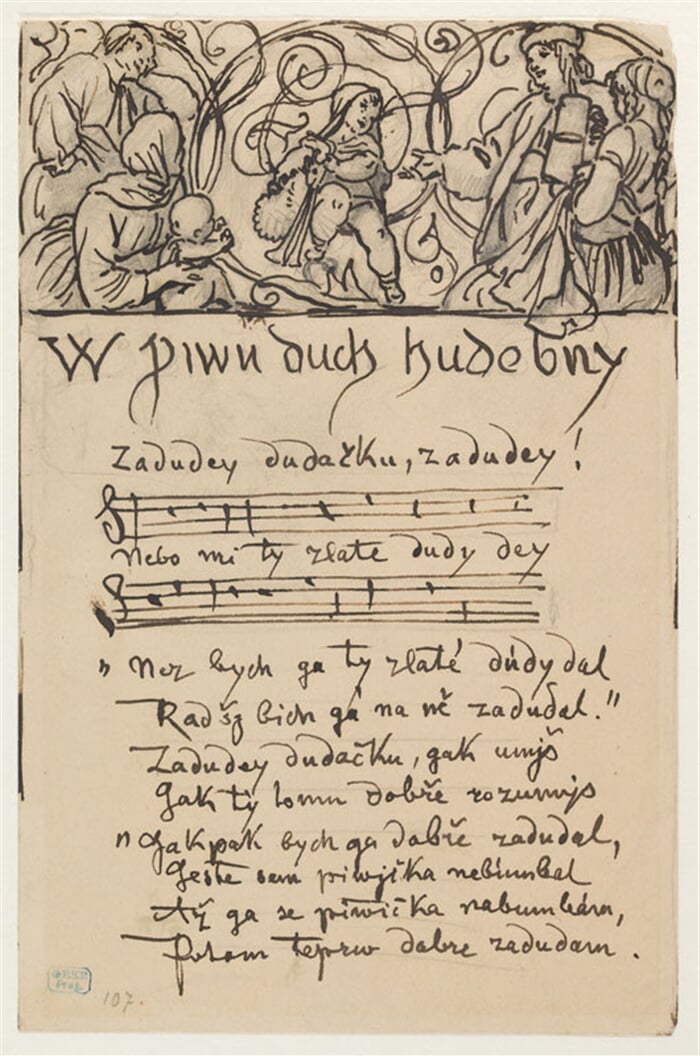 W piwu duch hudebny
Zadudey dudačku, zadudey!
Nebo mi ty zlate dudy dey
" Nez bych ga ty zlaté dúdy dal
Radšg bich gá na ně zadudal."
Zadudey dudačku, gak umjš
Gak ty tomu dobře rozumjs
" Gakpak bych ga dobře zadudal,
Geste sem piwjčka nebumbal
Až ga se piwička nabumbám,
Potom teprw dobre zadudam.
107.